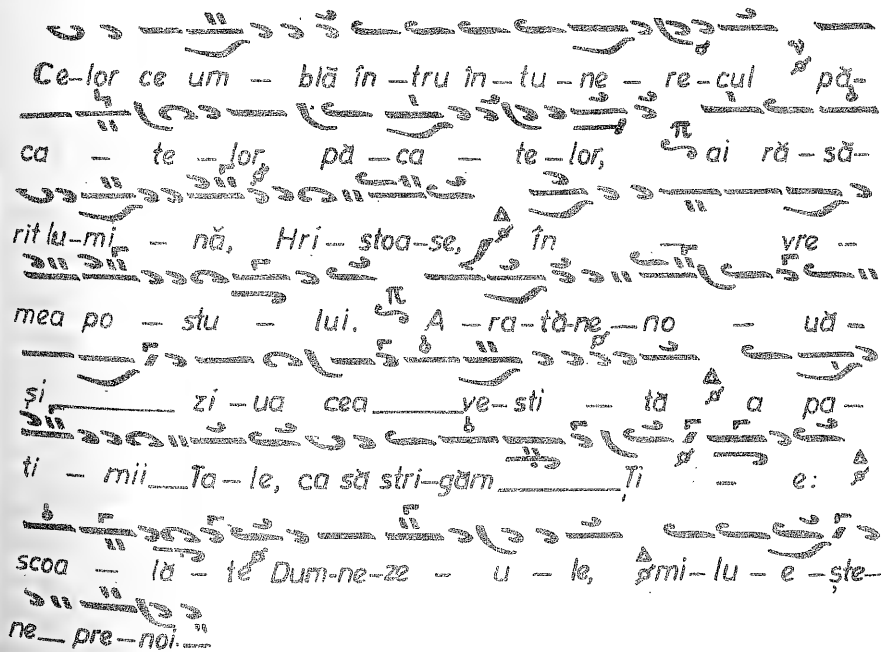 Ce-lor ce um - blă în-tru în-tu-ne-re-cul pă-
ca - te - lor, pă-ca - te-lor, π ai ră-să-
rit lu-mi - nă, Hri-stoa-se, Δ în - vre-
mea po - stu - lui. π A-ra-tă-ne-no - uă-
și zi-ua cea ve-sti - tă Δ a pa-
ti - mii Ta-le, ca să stri-găm Ți - e: Δ
scoa - lă-te Dum-ne-ze - u - le, Δ mi-lu-e-ște-
ne pre-noi.